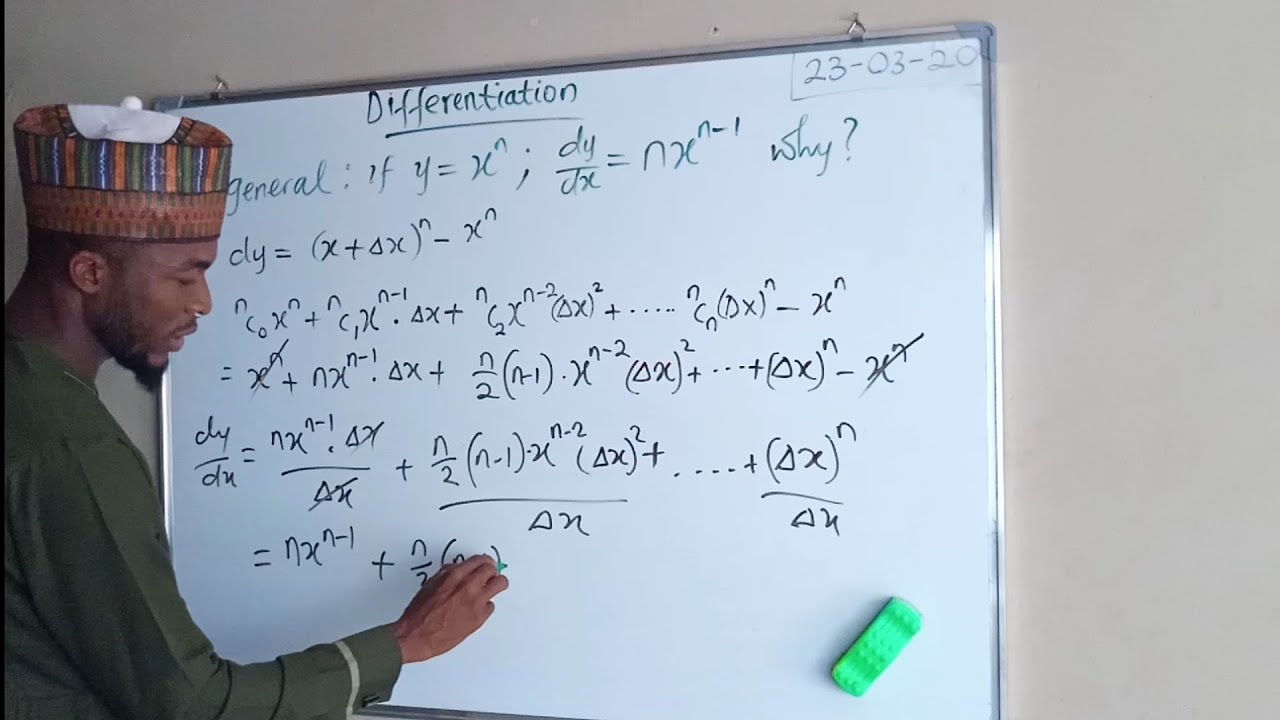 23-03-20
Differentiation
general: if y = xⁿ ; dy/dx = nxⁿ⁻¹ why?
dy = (x + Δx)ⁿ - xⁿ
ⁿC₀xⁿ + ⁿC₁xⁿ⁻¹. Δx + ⁿC₂xⁿ⁻²(Δx)² + ..... ⁿCₙ(Δx)ⁿ - xⁿ
= xⁿ + nxⁿ⁻¹. Δx + n/2 (n-1) . xⁿ⁻² (Δx)² + ... + (Δx)ⁿ - xⁿ
dy/dx = nxⁿ⁻¹. Δx/Δx + n/2 (n-1) . xⁿ⁻² (Δx)²/Δx + ..... + (Δx)ⁿ/Δx
= nxⁿ⁻¹ + n/2